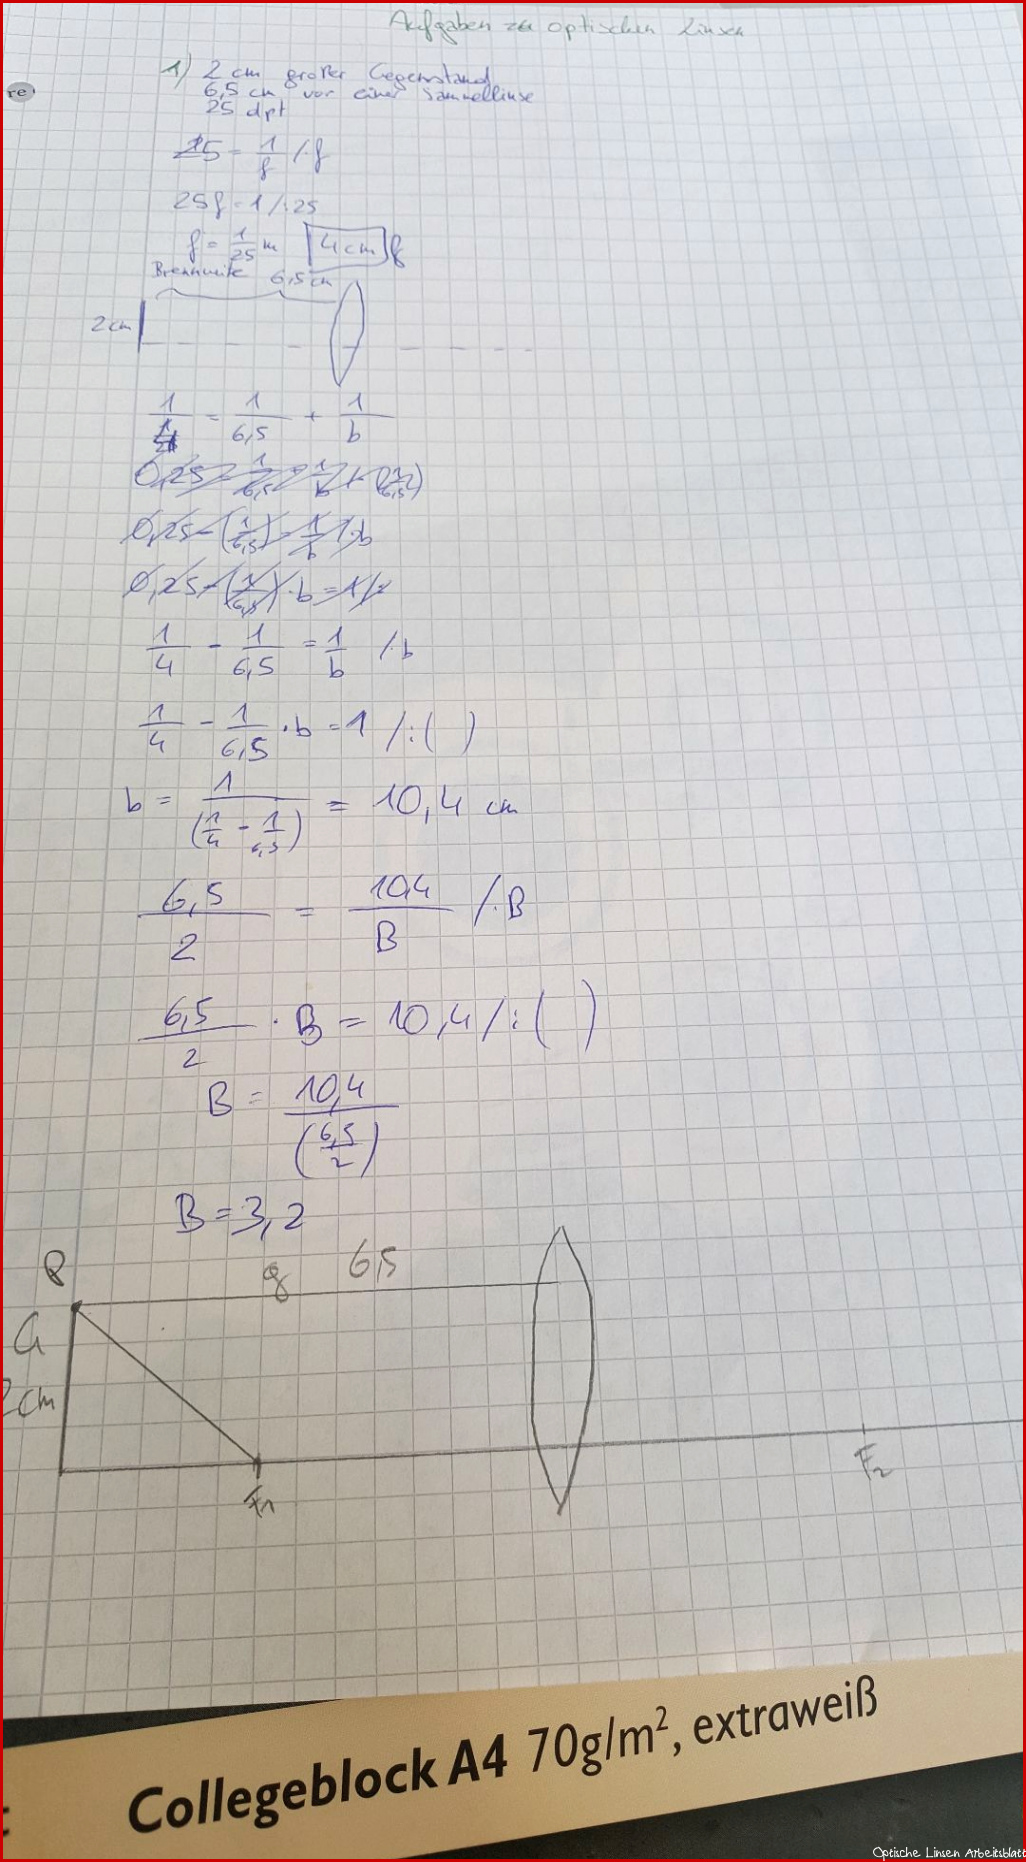 Aufgaben zu optischen Linsen
1) 2 cm großer Gegenstand
6,5 cm vor einer Sammellinse
25 dpt
re
25 = 1/f /·f
25f = 1 /:25
f = 1/25 m 4cm f
Brennweite 6,5cm
2cm
1/4 = 1/6,5 + 1/b
1/4 - 1/6,5 = 1/b /·b
1/4 - 1/6,5 · b = 1 /:( )
b = 1/(1/4 - 1/6,5) = 10,4 cm
6,5/2 = 10,4/B /·B
6,5/2 · B = 10,4 /:( )
B = 10,4/(6,5/2)
B = 3,2
P
g 6,5
G
2cm
F1
F2
Collegeblock A4 70g/m², extraweiß
Optische Linsen Arbeitsblatt